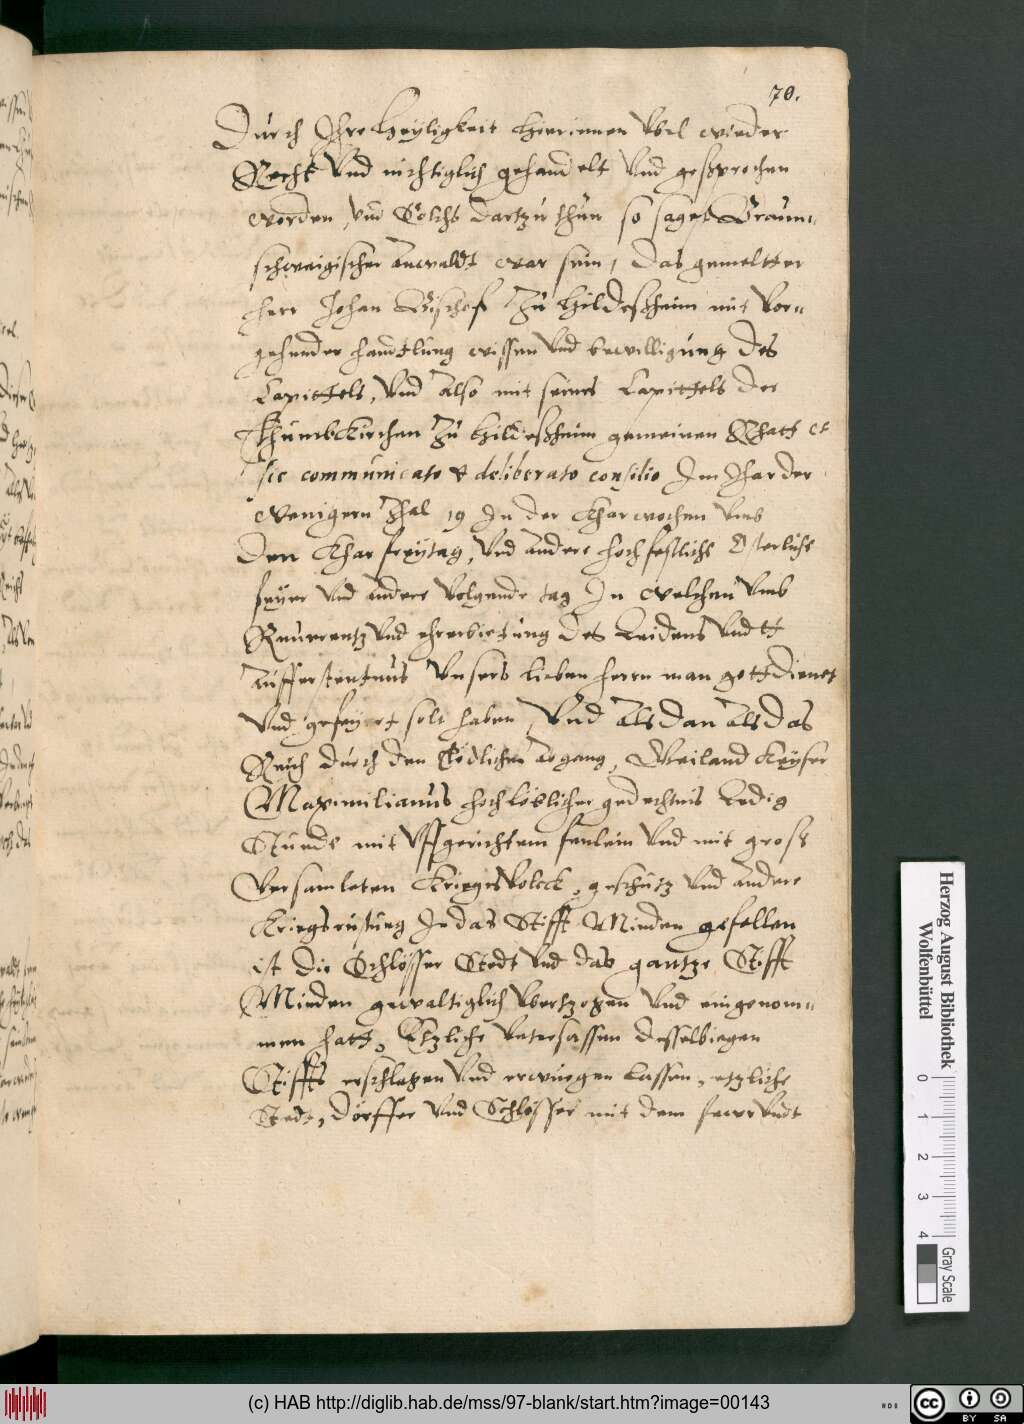 70.
Durch Ihre Heyligkeit hierinnen Vbel wieder
Recht Vnd nichtiglich gehandelt Vnd gesprochen
worden, Vnd Solchs dartzu thun so saget Braun-
schweigischer Anwaldt war sein, Das gemeltter
herr Johan Bischof Zu Hildesheim mit Vor-
gehender handtlung wissen Vnd bewilligung des
Capittels, Vnd Also mit seines Capittels der
Thumbkirchen Zu Hildesheim gemeinen Rhatt et
sic communicato & deliberato consilio Im Jhar der
Wenigern Zhal 19 In der Kharwochen Vmb
Den Kharfreytag, Vnd andere hochfestlichs Osterlichs
feyer Vnd andere Volgende tag In Welchen Vmb
Reuerentz Vnd ehrerbietung des Leidens Vndtt
Aufferstentnus Vnsers lieben herrn man gottdienst
Vnd gefeyert solt haben, Vnd Als dan Als das
Reich durch den Tödlichen abgang, Weiland Keyser
Maximilianus hochlöblicher gedechtnis Ledig
Stunde mit Vffgerichtem fenlein Vnd mit gross
Versamleten Kriegsvolck, geschutz Vnd andere
Kriegsrustung In das Stifft Minden gefallen
ist Die Schlösser Stedt Vnd das gantze Stifft
Minden gewaltiglich Vbertzogen Vnd eingenom-
men hatt, Etzliche Vntersassen desselbiegen
Stiffts erschlagen Vnd erwurgen lassen, etzliche
Stedt, Dörffer Vnd Schlösser mit dem fewr Vndt
Herzog August Bibliothek
Wolfenbüttel
0 1 2 3 4
Gray Scale
(c) HAB http://diglib.hab.de/mss/97-blank/start.htm?image=00143
cc BY SA